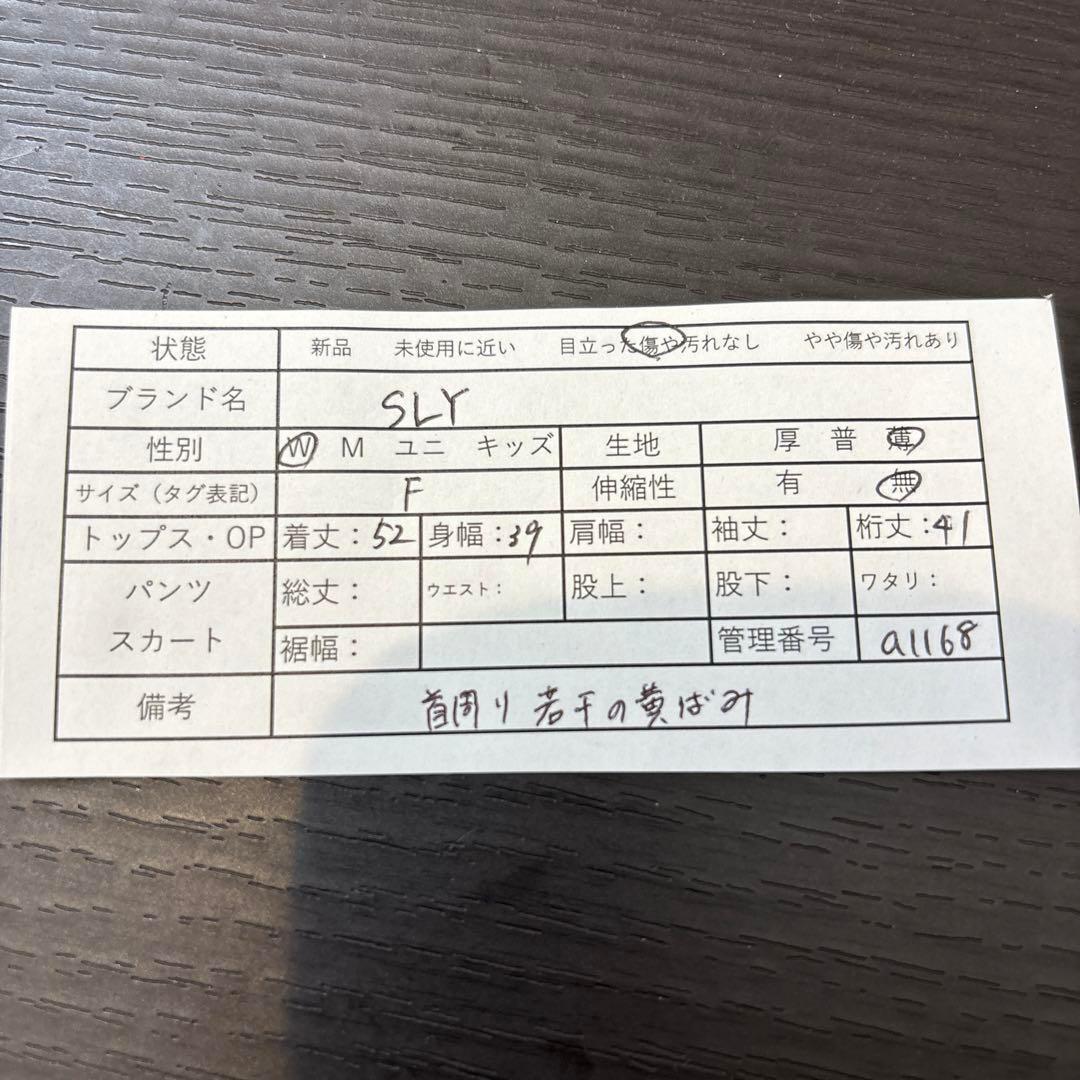 状態 新品 未使用に近い 目立った傷や汚れなし やや傷や汚れあり
ブランド名 SLY
性別 W M ユニ キッズ 生地 厚 普 薄
サイズ（タグ表記） F 伸縮性 有 無
トップス・OP 着丈：52 身幅：39 肩幅： 袖丈： 裄丈：41
パンツ 総丈： ウエスト： 股上： 股下： ワタリ：
スカート 裾幅： 管理番号 a1168
備考 首周り 若干の黄ばみ